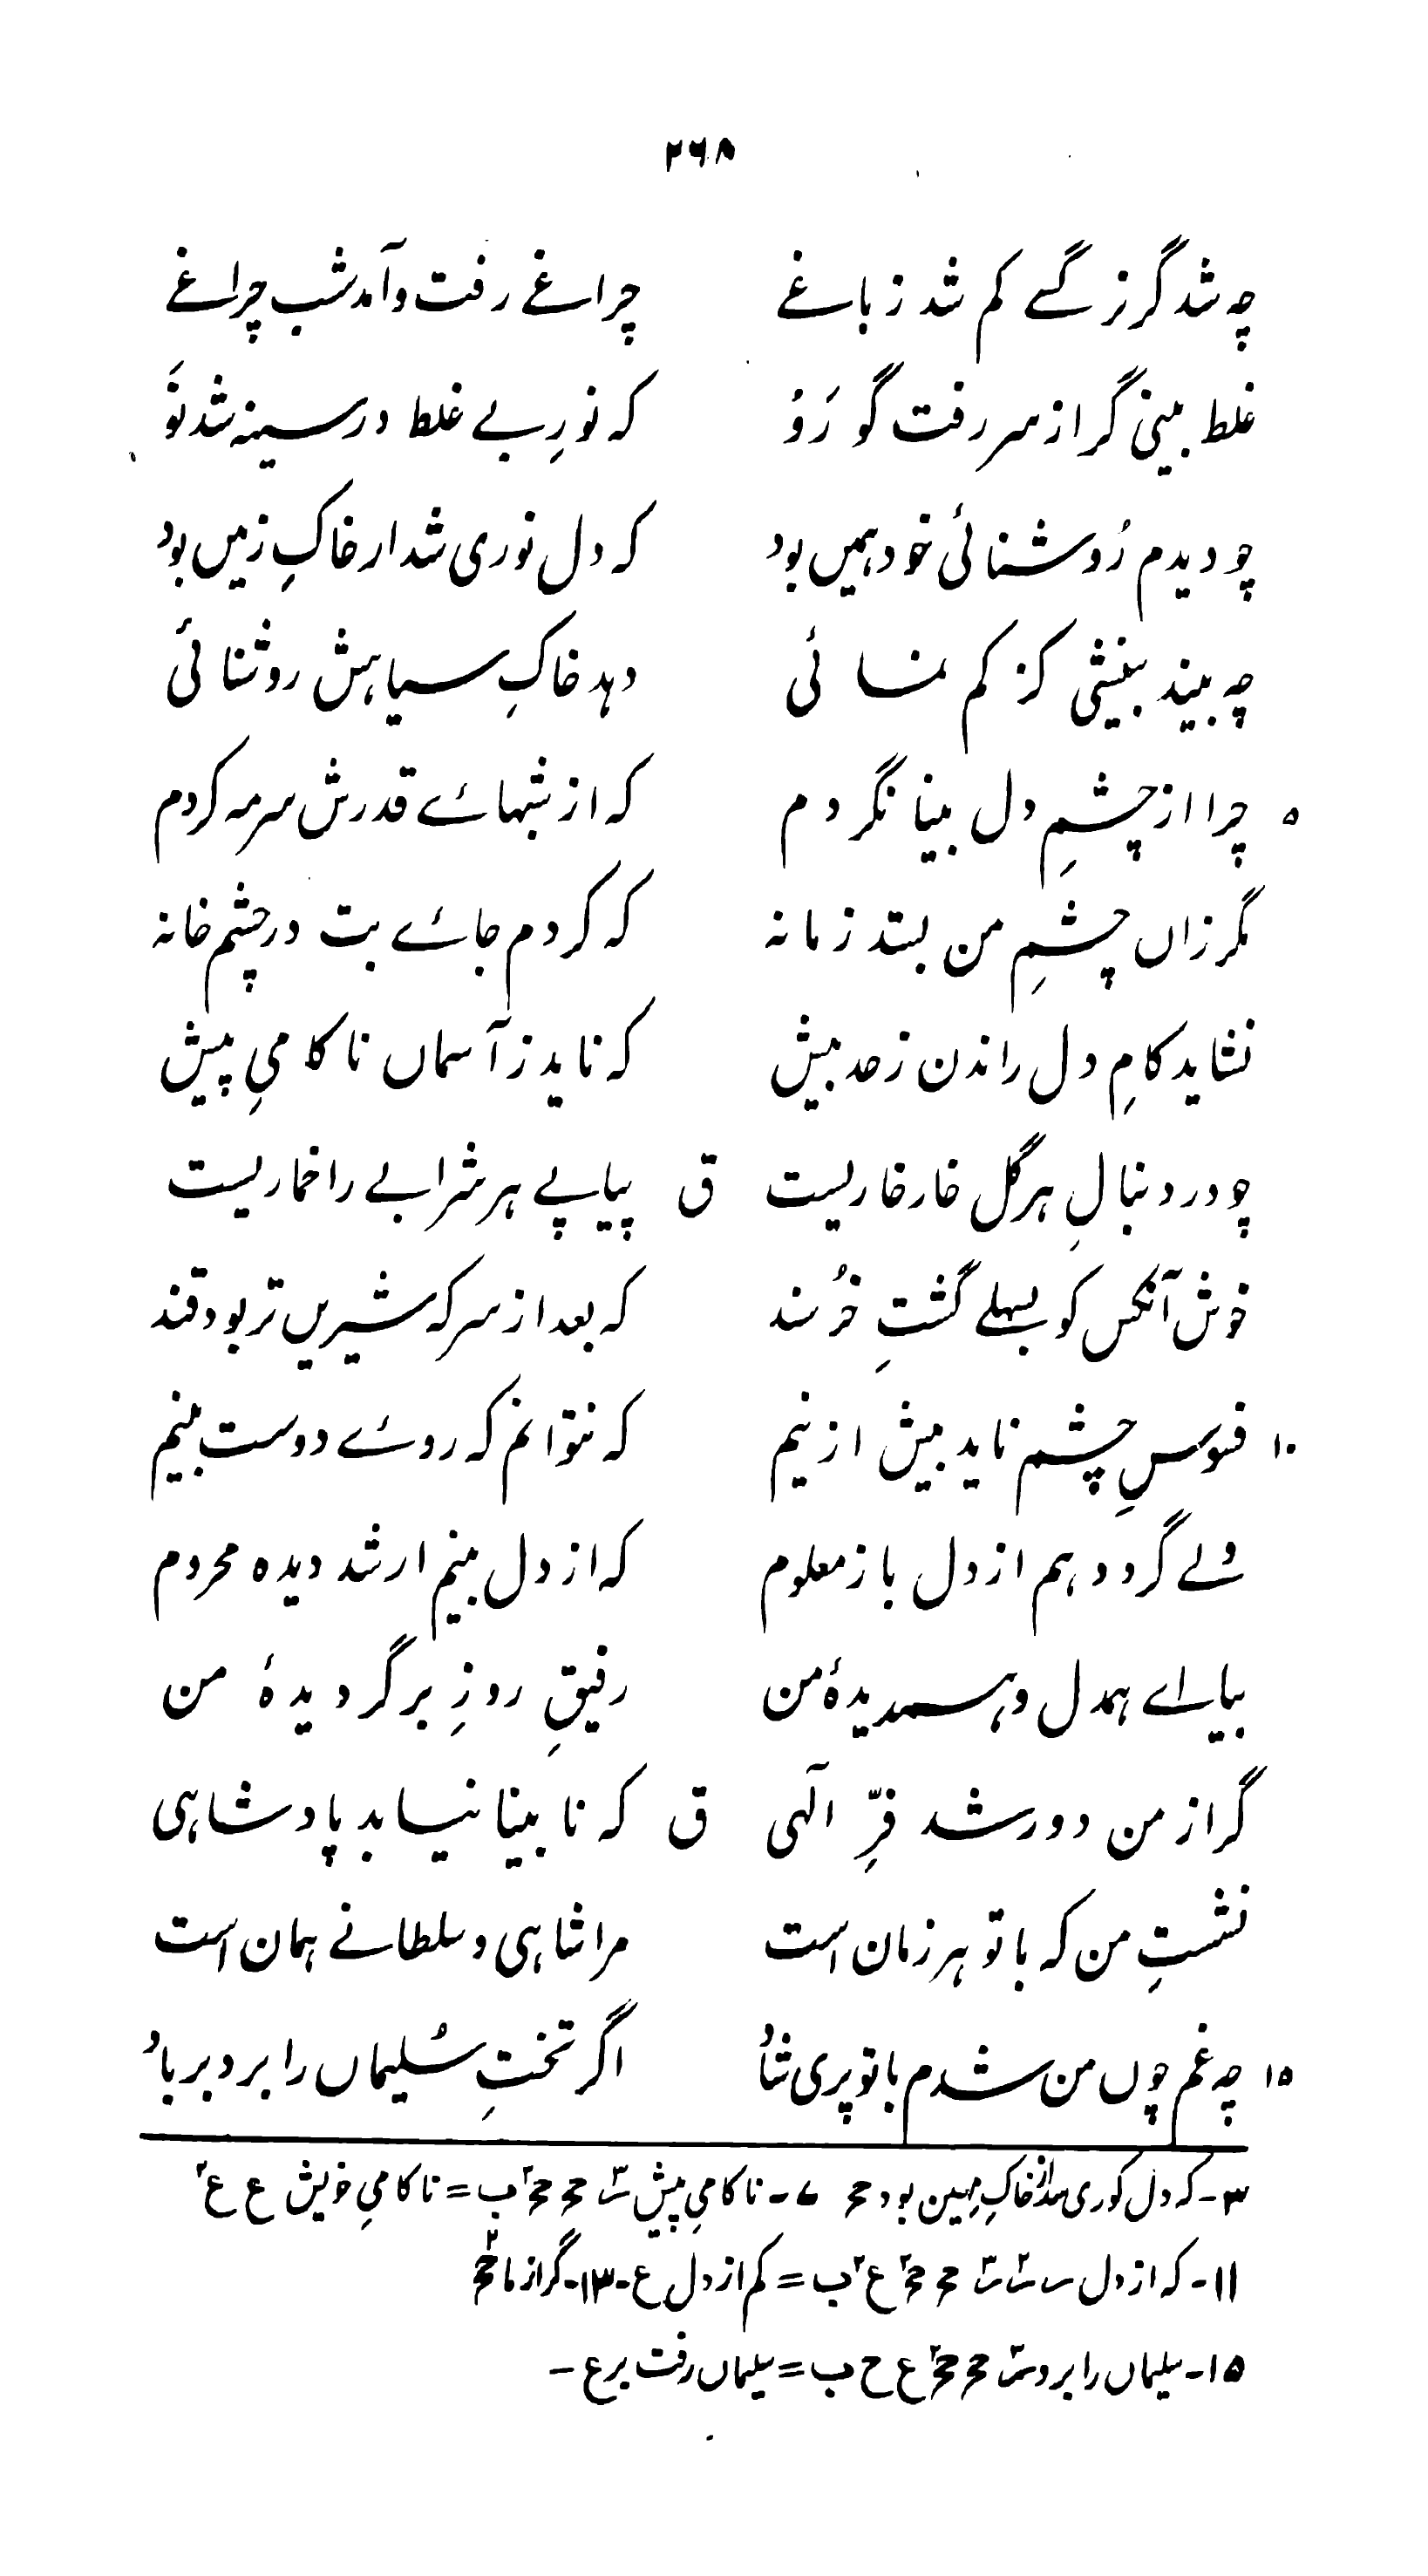 ۲۶۸
چہ شد گر نرگسے کم شد ز باغے چراغے رفت و آمد شب چراغے
غلط بینی گر از سر رفت گو رَوُ کہ نورِ بے غلط در سینہ شد نَوُ
چو دیدم رُوشنائی خود ہمیں بود کہ دل نوری شد ار خاکِ زمیں بود
چہ بیند بینشی کز کم نمائی دہد خاکِ سیاہش روشنائی
۵ چرا از چشمِ دل بینا نگردم کہ از شبہائے قدرش سرمہ کردم
مگر زاں چشمِ من بستد زمانہ کہ کردم جائے بت در چشم خانہ
نشاید کامِ دل راندن ز حد بیش کہ ناید ز آسماں ناکامیِ پیش
چو در دنبالِ ہر گل خار خاریست ق پیاپے ہر شرابے را خماریست
خوش آنکس کو بسہلے گشتِ خُرسند کہ بعد از سرکہ شیریں تر بود قند
۱۰ فسوسِ چشم ناید بیش ازینم کہ نتوانم کہ روئے دوست بینم
ولے گردد ہم از دل باز معلوم کہ از دل بینم ار شد دیدہ محروم
بیا اے ہمدل و ہمدیدۂ من رفیقِ روزِ برگردیدۂ من
گر از من دور شد فرِّ الٰہی ق کہ نابینا نیابد پادشاہی
نشستِ من کہ با تو ہر زمان است مرا شاہی و سلطانے ہمان است
۱۵ چہ غم چوں من شدم با تو پری شادُ اگر تختِ سُلیماں را برد بر بادُ
۳- کہ دل کوری شد از خاکِ مہین بود حج ۷- ناکامیِ پیش س۳ حج حج۲ ب = ناکامیِ خویش ع ع۲
۱۱- کہ از دل س س۲ س۳ حج حج۲ ع۲ ب = کم از دل ع- ۱۳- گر از ما حج۲
۱۵- سلیماں را برد س۳ حج حج۲ ع ح ب = سلیماں رفت بر ع-